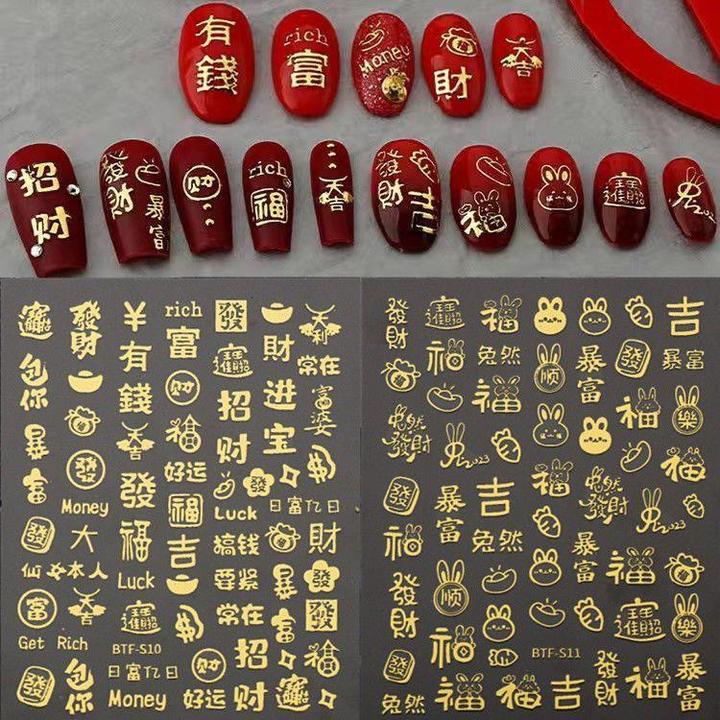 有錢
rich
富
Money
財
大吉
招财
發財
暴富
财
rich
福
大吉
發財
吉
福
招財進寶
2023
招財進寶
發財
¥
有錢
rich
富
發
財
大利
常在
包你
招財進寶
进宝
富婆
暴富
發
大吉
财
福
好运
招财
發
Money
發福
福
Luck
日富亿日
發
大
吉
搞钱
要紧
財
仙女本人
Luck
暴
發
富
大吉
招財進寶
常在
發
Get Rich
BTF-S10
财
招财
福
發
包你
日富亿日
Money
好运
招財進寶
發財
招財進寶
福
吉
福
兔然
顺
暴富
發
暴富
福
福
樂
兔然發財
2023
福
福
發
暴富
吉
福
兔然發財
2023
福
兔然
暴富
福
發財
顺
發財
招財進寶
樂
福
BTF-S11
發
兔然
福
福
吉
發財
福
暴富